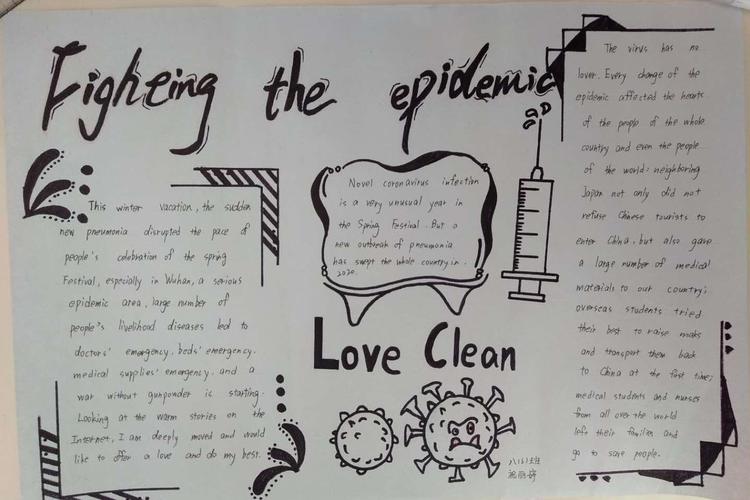 Fighteing the epidemic
This winter vacation, the sudden
new pneumonia disrupted the pace of
people's celebration of the spring
Festival, especially in Wuhan, a serious
epidemic area, large number of
people's livelihood diseases led to
doctors' emergency, beds' emergency.
medical supplies' emergency. and a
war without gunpowder is starting.
Looking at the warm stories on the
Internet, I am deeply moved and would
like to offer a love and do my best.
Novel coronavirus infection
is a very unusual year in
the Spring Festival. But a
new outbreak of pneumonia
has swept the whole country in.
2020.
Love Clean
八(6)班
The virus has no
lover. Every change of the
epidemic affected the hearts
of the people of the whole
country and even the people
of the world: neighboring
Japan not only did not
refuse Chinese tourists to
enter China, but also gave
a large number of medical
materials to our country;
overseas students tried
their best to raise masks
and transport them back
to China at the fist time;
medical students and nurses
from all over the world
left their families and
go to save people.